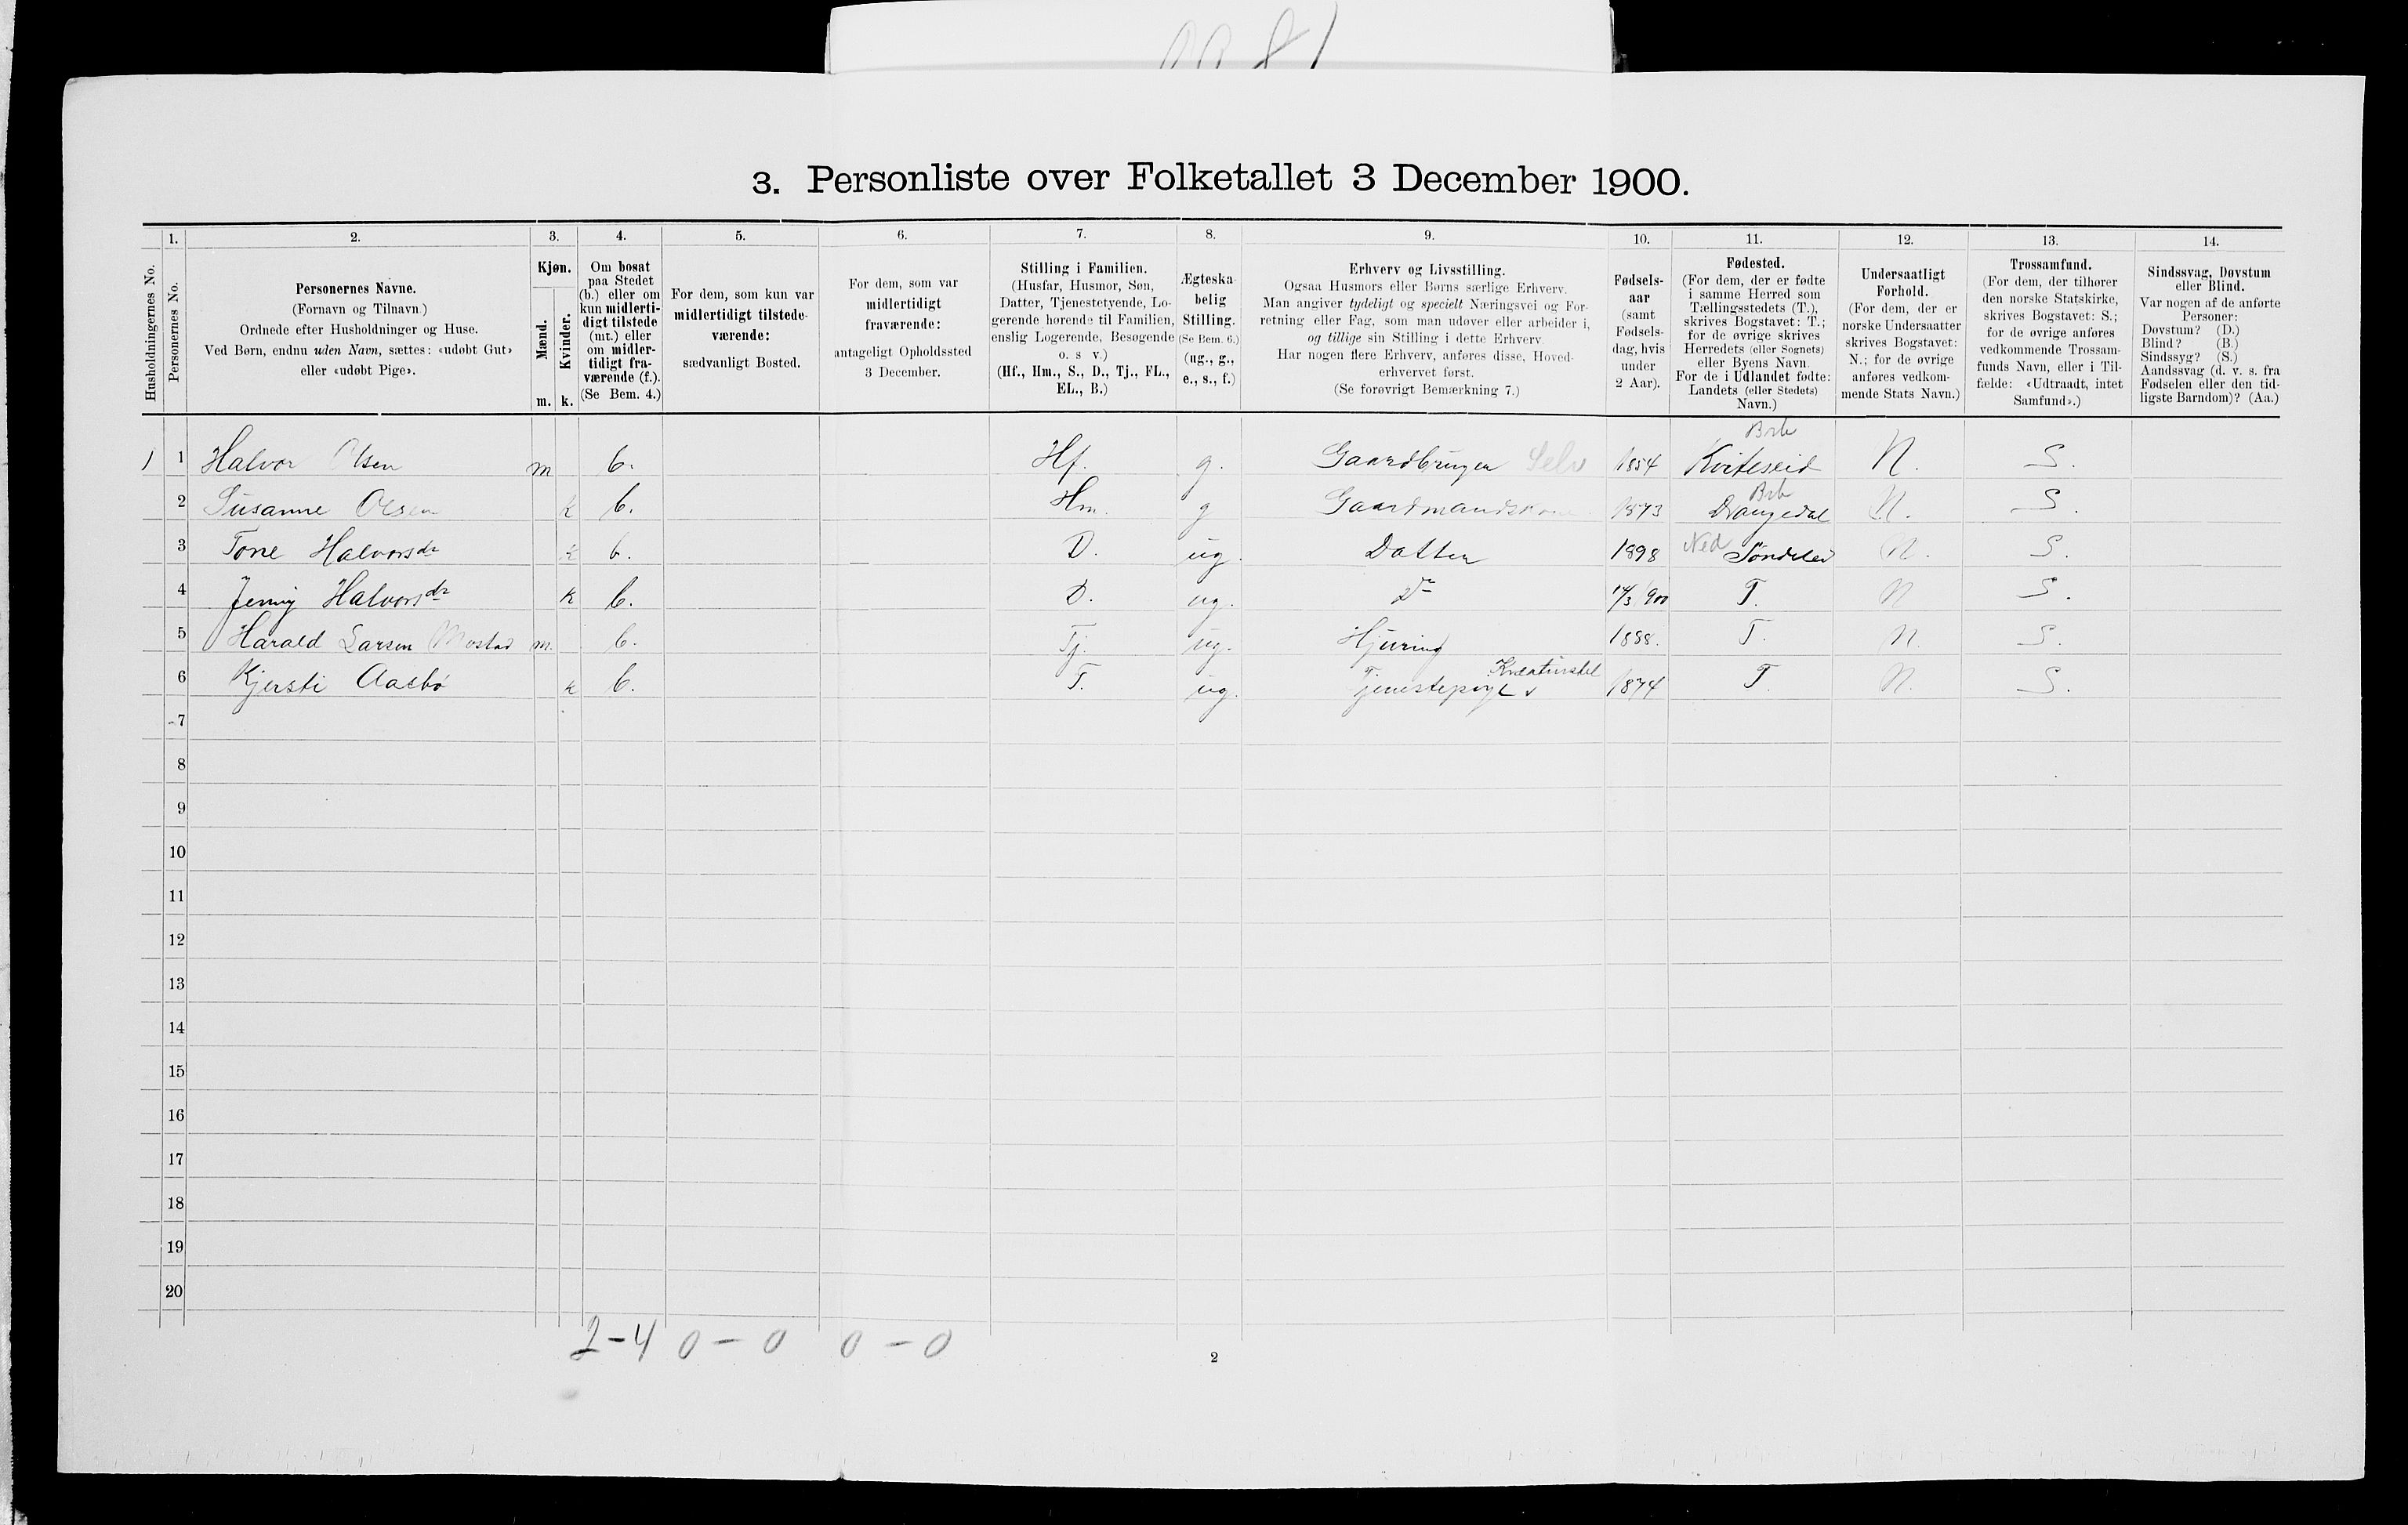 3. Personliste over Folketallet 3 December 1900.
1. 2. 3. 4. 5. 6. 7. 8. 9. 10. 11. 12. 13. 14.
Husholdningernes No.
Personernes No.
Personernes Navne.
(Fornavn og Tilnavn)
Ordnede efter Husholdninger og Huse.
Ved Børn, endnu uden Navn, sættes: «udøbt Gut»
eller «udøbt Pige».
Kjøn.
Mænd.
Kvinder.
m. k.
Om bosat
paa Stedet
(b.) eller om
kun midlerti-
digt tilstede
(mt.) eller
om midler-
tidigt fra-
værende (f.).
(Se Bem. 4.)
For dem, som kun var
midlertidigt tilstede-
værende:
sædvanligt Bosted.
For dem, som var
midlertidigt
fraværende:
antageligt Opholdssted
3 December.
Stilling i Familien.
(Husfar, Husmor, Søn,
Datter, Tjenestetyende, Lo-
gerende hørende til Familien,
enslig Logerende, Besøgende
o. s v.)
(Hf., Hm., S., D., Tj., FL.,
EL., B.)
Ægteska-
belig
Stilling.
(Se Bem. 6.)
(ug., g.,
e., s., f.)
Erhverv og Livsstilling.
Ogsaa Husmors eller Børns særlige Erhverv.
Man angiver tydeligt og specielt Næringsvei og For-
retning eller Fag, som man udøver eller arbeider i,
og tillige sin Stilling i dette Erhverv.
Har nogen flere Erhverv, anføres disse, Hoved-
erhvervet først.
(Se forøvrigt Bemærkning 7.)
Fødsels-
aar
(samt
Fødsels-
dag, hvis
under
2 Aar).
Fødested.
(For dem, der er fødte
i samme Herred som
Tællingsstedets (T.),
skrives Bogstavet: T.;
for de øvrige skrives
Herredets (eller Sognets)
eller Byens Navn.
For de i Udlandet fødte:
Landets (eller Stedets)
Navn.)
Undersaatligt
Forhold.
(For dem, der er
norske Undersaatter
skrives Bogstavet:
N.; for de øvrige
anføres vedkom-
mende Stats Navn.)
Trossamfund.
(For dem, der tilhører
den norske Statskirke,
skrives Bogstavet: S.;
for de øvrige anføres
vedkommende Trossam-
funds Navn, eller i Til-
fælde: «Udtraadt, intet
Samfund».)
Sindssvag, Døvstum
eller Blind.
Var nogen af de anførte
Personer:
Døvstum? (D.)
Blind? (B.)
Sindssyg? (S.)
Aandssvag (d. v. s. fra
Fødselen eller den tid-
ligste Barndom)? (Aa.)
Brb
1 1 Halvor Olsen m b. Hf. g. Gaardbruger Selv 1854 Kviteseid N. S.
Brb
2 Susanne Olsen k b. Hm. g Gaardmandskone 1873 Drangedal N. S.
3 Tone Halvorsdr k b. D. ug. Datter 1898 Ned Søndeled N. S.
4 Jenny Halvorsdr k b. D. ug. Do /3 900 T. N S.
5 Harald Larsen Mostad m. b. Tj. ug. Hjuring 1888. T. N. S.
Kreaturstel
6 Kjersti Aasbø k b. T. ug. Tjenestepige v 1874 T. N. S.
7
8
9
10
11
12
13
14
15
16
17
18
19
20
2-4 0-0 0-0
2